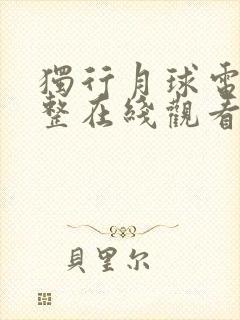 獨行月球電
整在綫觀看
貝里尔